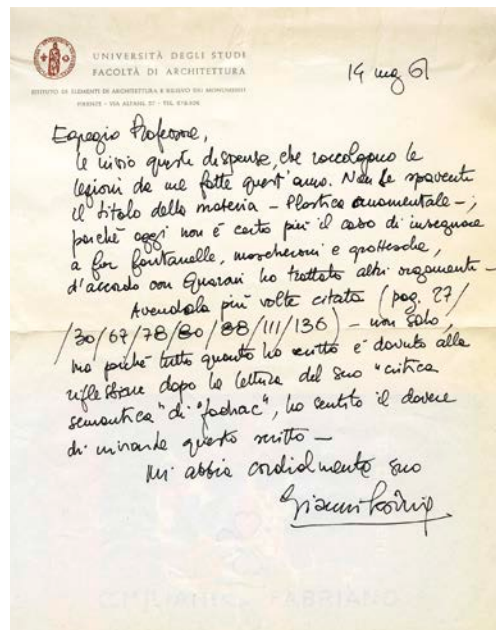 UNIVERSITÀ DEGLI STUDI
FACOLTÀ DI ARCHITETTURA
ISTITUTO DI ELEMENTI DI ARCHITETTURA E RILIEVO DEI MONUMENTI
FIRENZE - VIA ALFANI, 57 - TEL.
14 mag 61
Egregio Professore,
le invio queste dispense, che raccolgono le
lezioni da me fatte quest'anno. Non la spaventi
il titolo della materia - Plastica ornamentale - ;
poiché oggi non è certo più il caso di insegnare
a far fontanelle, mascheroni e grottesche,
d'accordo con Quaroni ho trattato altri argomenti -
Avendola più volte citata (pag. 27/
/30/67/78/80/88/111/136) - non solo,
ma poiché tutto quanto ho scritto è dovuto alla
riflessione dopo la lettura del suo "critica
semantica" di, ho sentito il dovere
di inviarle questo scritto -
Mi abbia cordialmente suo
Gianni Koenig
FABRIANO